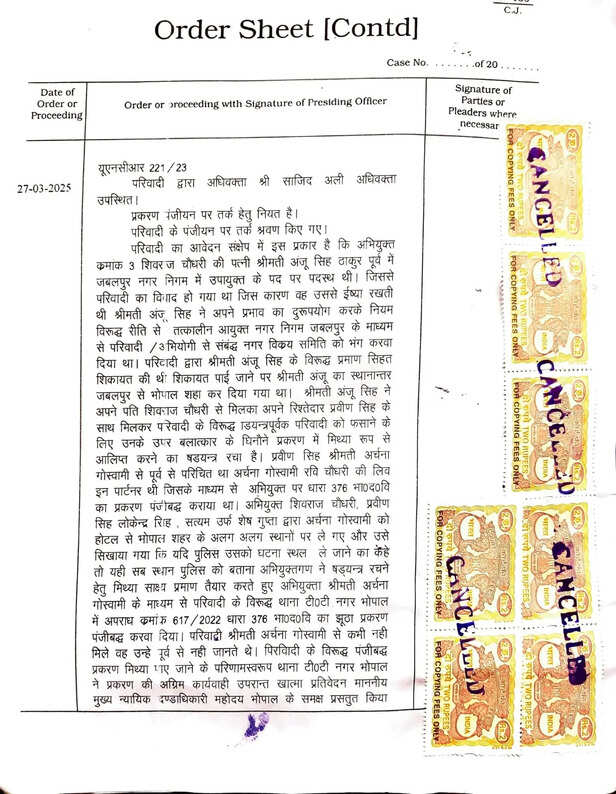 C.J.
Order Sheet [Contd]
Case No. ........of 20 .......
Date of
Order or
Proceeding
Order or proceeding with Signature of Presiding Officer
Signature of
Parties or
Pleaders where
necessar
27-03-2025
यूएनसीआर 221/23
परिवादी द्वारा अधिवक्ता श्री साजिद अली अधिवक्ता
उपस्थित।
प्रकरण पंजीयन पर तर्क हेतु नियत है।
परिवादी के पंजीयन पर तर्क श्रवण किए गए।
परिवादी का आवेदन संक्षेप में इस प्रकार है कि अभियुक्त
क्रमांक 3 शिवराज चौधरी की पत्नी श्रीमती अंजू सिंह ठाकुर पूर्व में
जबलपुर नगर निगम में उपायुक्त के पद पर पदस्थ थी। जिससे
परिवादी का विवाद हो गया था जिस कारण वह उससे ईर्ष्या रखती
थी श्रीमती अंजू सिंह ने अपने प्रभाव का दुरूपयोग करके नियम
विरूद्ध रीति से तत्कालीन आयुक्त नगर निगम जबलपुर के माध्यम
से परिवादी /अभियोगी से संबद्ध नगर विक्रय समिति को भंग करवा
दिया था। परिवादी द्वारा श्रीमती अंजू सिंह के विरूद्ध प्रमाण सिहत
शिकायत की थी शिकायत पाई जाने पर श्रीमती अंजू का स्थानान्तर
जबलपुर से भोपाल शहा कर दिया गया था। श्रीमती अंजू सिंह ने
अपने पति शिवराज चौधरी से मिलका अपने रिश्तेदार प्रवीण सिंह के
साथ मिलकर परिवादी के विरूद्ध डयन्त्रपूर्वक परिवादी को फसाने के
लिए उनके उपर बलात्कार के घिनौने प्रकरण में मिथ्या रूप से
आलिप्त करने का षडयन्त्र रचा है। प्रवीण सिंह श्रीमती अर्चना
गोस्वामी से पूर्व से परिचित था अर्चना गोस्वामी रवि चौधरी की लिव
इन पार्टनर थी जिसके माध्यम से अभियुक्त पर धारा 376 भा0द0वि
का प्रकरण पंजीबद्ध कराया था। अभियुक्त शिवराज चौधरी, प्रवीण
सिंह लोकेन्द्र सिंह , सत्यम उर्फ शेष गुप्ता द्वारा अर्चना गोस्वामी को
होटल से भोपाल शहर के अलग अलग स्थानों पर ले गए और उसे
सिखाया गया कि यदि पुलिस उसको घटना स्थल ले जाने का कहे
तो यही सब स्थान पुलिस को बताना अभियुक्तगण ने षडयन्त्र रचने
हेतु मिथ्या साक्ष्य प्रमाण तैयार करते हुए अभियुक्ता श्रीमती अर्चना
गोस्वामी के माध्यम से परिवादी के विरूद्ध थाना टी0टी नगर भोपाल
में अपराध क्रमांक 617/2022 धारा 376 भा0द0वि का झूठा प्रकरण
पंजीबद्ध करवा दिया। परिवादी श्रीमती अर्चना गोस्वामी से कभी नही
मिले वह उन्हे पूर्व से नही जानते थे। परिवादी के विरूद्ध पंजीबद्ध
प्रकरण मिथ्या पाए जाने के परिणामस्वरूप थाना टी0टी नगर भोपाल
ने प्रकरण की अग्रिम कार्यवाही उपरान्त खात्मा प्रतिवेदन माननीय
मुख्य न्यायिक दण्डाधिकारी महोदय भोपाल के समक्ष प्रस्तुत किया
FOR COPYING FEES ONLY
दो रुपये TWO RUPEES
INDIA
CANCELLED
FOR COPYING FEES ONLY
दो रुपये TWO RUPEES
INDIA
CANCELLED
FOR COPYING FEES ONLY
दो रुपये TWO RUPEES
INDIA
FOR COPYING FEES ONLY
दो रुपये TWO RUPEES
CANCELLED
TWO RUPEES
INDIA
CANCELLED
FOR COPYING FEES ONLY
दो रुपये TWO RUPEES
INDIA
TWO RUPEES
INDIA